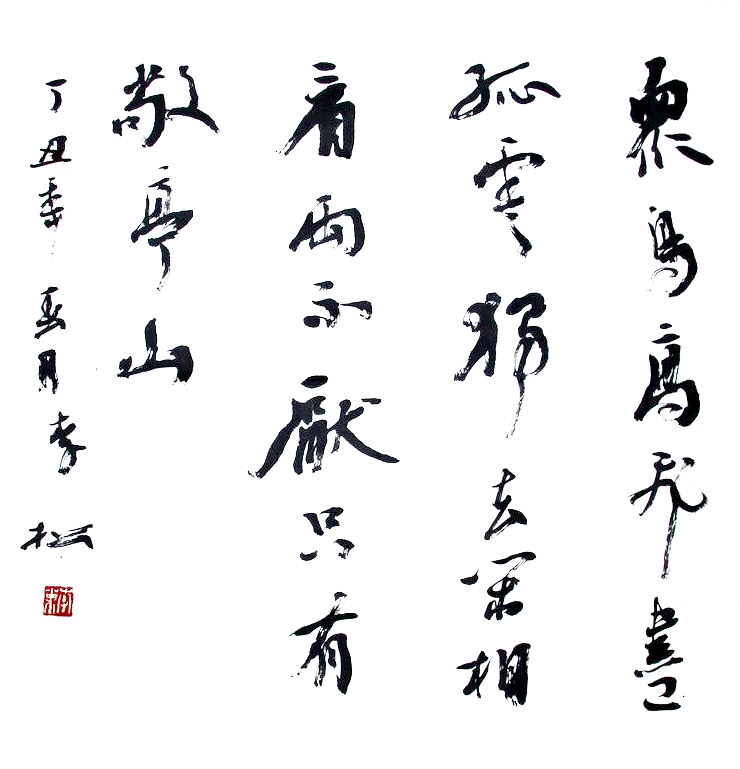 眾鳥高飛盡
孤雲獨去閑相
看兩不厭只有
敬亭山
丁丑年春月李松